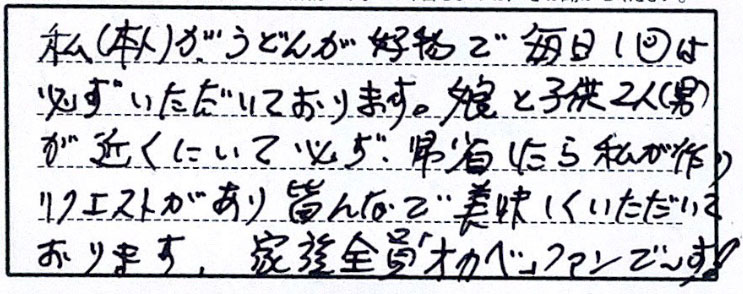 私(本人)がうどんが好物で毎日1回は
必ずいただいております。娘と子供2人(男)
が近くにいて必ず、帰省したら私が作り
リクエストがあり皆んなで美味しくいただいて
おります、家族全員「オカベ」ファンです!